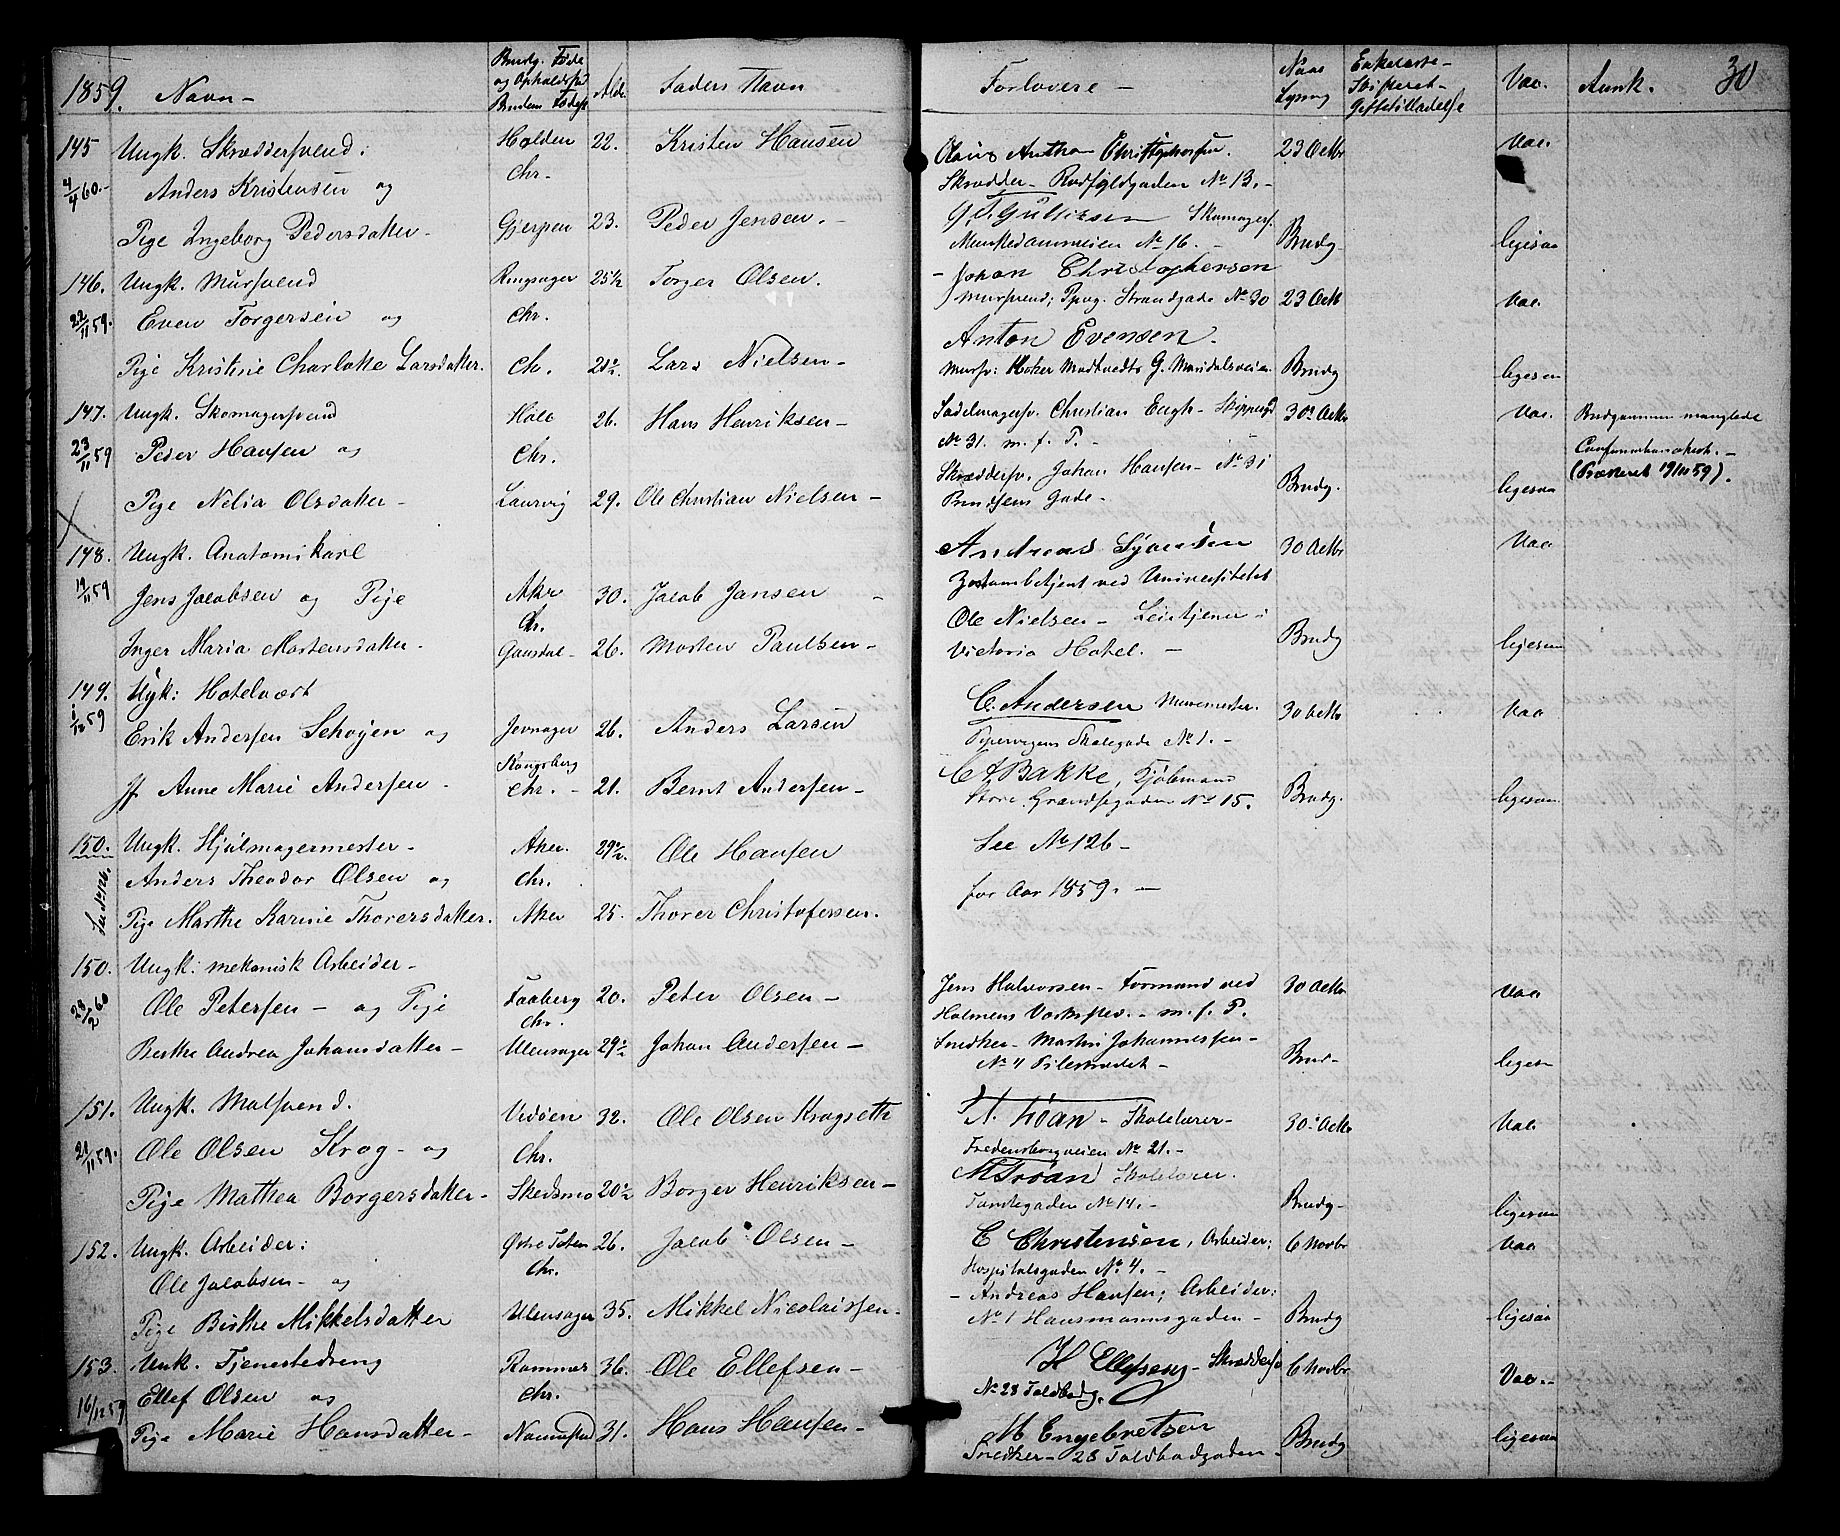 1859.
Navn -
Brudg. Føde
og Opholdssted
Brudens Fødest
Alder
Faders Navn
Forlovere -
Naar
Lysning
Enkeattest -
Skifteret -
Giftetilladelse
Vac.
Anmk.
30
145 Ungk. Skrædersvend: Holden 22. Kristen Hansen
4/4 60. Anders Kristensen og Chr.
Pige Ingeborg Pedersdatter - Gjerpen 23. Peder Jensen. -
146. Ungk. Mursvend Ringsager 25 1/2 Torger Olsen.
22/11 59. Even Torgersen og Chr.
Pige Kristine Charlotte Larsdatter. Ch. Lars Nielsen -
147. Ungk. Skomagersvend Hole 26. Hans Henriksen -
23/11 59 Peder Hansen og Chr.
Pige Nelia Olsdatter - Laurvig 29. Ole Christian Nielsen -
148. Ungk. Anatomikarl
19/11 59 Jens Jacobsen og Pige Akr 30. Jacob Jansen -
Chr.
Inger Maria Mortensdatter - Gausdal - 26. Morten Paulsen -
149. Ugk: Hotelvært
1/12 59 Erik Andersen Schøjen og Jevnager 26. Anders Larsen
Kongsberg
Jf Anne Marie Andersen - Chr. - 21. Bernt Andersen -
150. Ungk. Hjulmagermester - Aker. 29 1/2. Ole Hansen
See No 126. Anders Theodor Olsen og Chr.
Pige Marthe Karine Thorersdatter. Aker 25. Thorer Christofersen.
150. Ungk: mekanisk Arbeider -
28/2 60 Ole Petersen - og Pige Faaberg 20. Peter Olsen -
Chr.
Berthe Andrea Johansdatter - Ulensager 29 1/2 Johan Andersen -
151. Ungk. Malsvend. Vedøen 32. Ole Olsen Krogseth
21/11 59. Ole Olsen Krog - og Chr.
Pige Mathea Borgersdatter - Skedsmo 20 1/2 Borger Henriksen -
152. Ungk. Arbeider: Østre Toten 26. Jacob Olsen -
Chr.
Ole Jacobsen - og
Pige Birthe Mikkelsdatter Ulensager 35. Mikkel Nicolaissen -
153. Unk. Tjenestedreng Rommes 36. Ole Ellefsen -
16/12 59 Ellef Olsen og Chr.
Pige Marie Hansdatter - Nannestad 31. Hans Hansen -
Claus Anthon Christophersen 23 Octbr Vac.
Skrædder - Rodfyldgaden No 13. -
Skomagersv.
Munkedammveien No 16. - Brudg. ligesaa
- Johan Christophersen
Mursvend; Pipvg. Strandgade No 30 23 Octb Vac.
Anton Evensen.
Mursv: Høker Modtvedts G. Maridalsveien Brudg ligesaa
Sadelmagersv. Christian Engh - Skippergd 30t Octbr Vac. Brudgommen manglede
No 31. m. f. P. - Confirmationsattest. -
Skræddersv. Johan Hansen - No 31 Brudg. ligesaa (Præsteret 19/11 59).
Prindsens Gade -
Andreas 30 Octbr Vac
Zootombetjent ved Universitetet
Ole Nielsen - Leietjener i
Victoria Hotel. - Brudg ligesaa
C. Andersen Muremester. 30 Octbr Vac
Pipervigens Skolegade No 1. -
C A Bakke, Kjøbmand
Store Grændsegaden No 15. Brudg. ligesaa
See No 126 -
for Aar 1859. -
Jens Halvorsen - Formand ved 30 Octbr Vac
Holmens Værksted. - m. f. P.
Snedker - Martin Johannessen -
No 11 Pilestrædet - Brud - ligesa
N. Troan - Skolelærer - 30t Octbr Vac
Fredensborgveien No 21. -
M Troan Skolelærer.
Tomtegaden No 14. - Brudg - ligesaa
C Christensen, Arbeider; 6 Novbr Vac
Hospitalsgaden No 4. -
- Andreas Hansen; Arbeider;
No 1 Hausmannsgaden - Brudg ligesaa
H Ellefsen - Skræddersv 6 Novbr Vac. -
No 28 Toldbodg.
M Engebretsen
Snedker - 28 Toldbodgaden - Brudg ligesaa